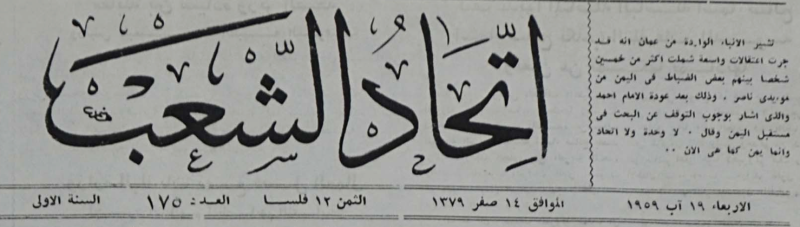 اتحاد الشعب
تشير الانباء الواردة من عمان انه قد
جرت اعتقالات واسعة شملت اكثر من خمسين
شخصا بينهم بعض الضباط فى اليمن من
مويدى ناصر . وذلك بعد عودة الامام احمد
والذى اشار بوجوب التوقف عن البحث فى
مستقبل اليمن وقال . لا وحدة ولا اتحاد
وانما يمن كما هى الان ٠٠
الاربعاء ١٩ آب ١٩٥٩ الموافق ١٤ صفر ١٣٧٩ الثمن ١٢ فلسا العدد: ١٧٥ السنة الاولى